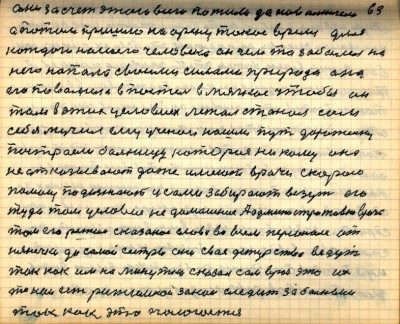 они за счет этого всего потива да нав 63
а потом пришло на арену такое время для
каждого нашего человека он чем то заболел на
него напала своими силами природа она
его повалила в постел в мягкое чтобы он
там в этих условиях лежал стонал сам
себя мучил ему ученого нашли пут дорожку
построели болницу которая никому она
не отказывают даже имеют врачи скорою
помощ подезжают и сами забирают везут его
туда там условие не домашние Администратовно врач
там его режим сказаное слово во всем персонале от
нянечки до самой сестры они свае дежурство ведут
так как им на минутки сказал сам врач это их
такой есть режимной закон следит за болным
так как это положется